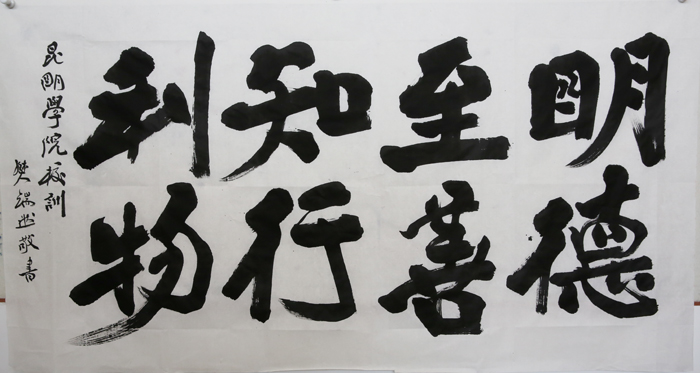 明德
至善
知行
利物
昆明學院校訓
樊端然敬書